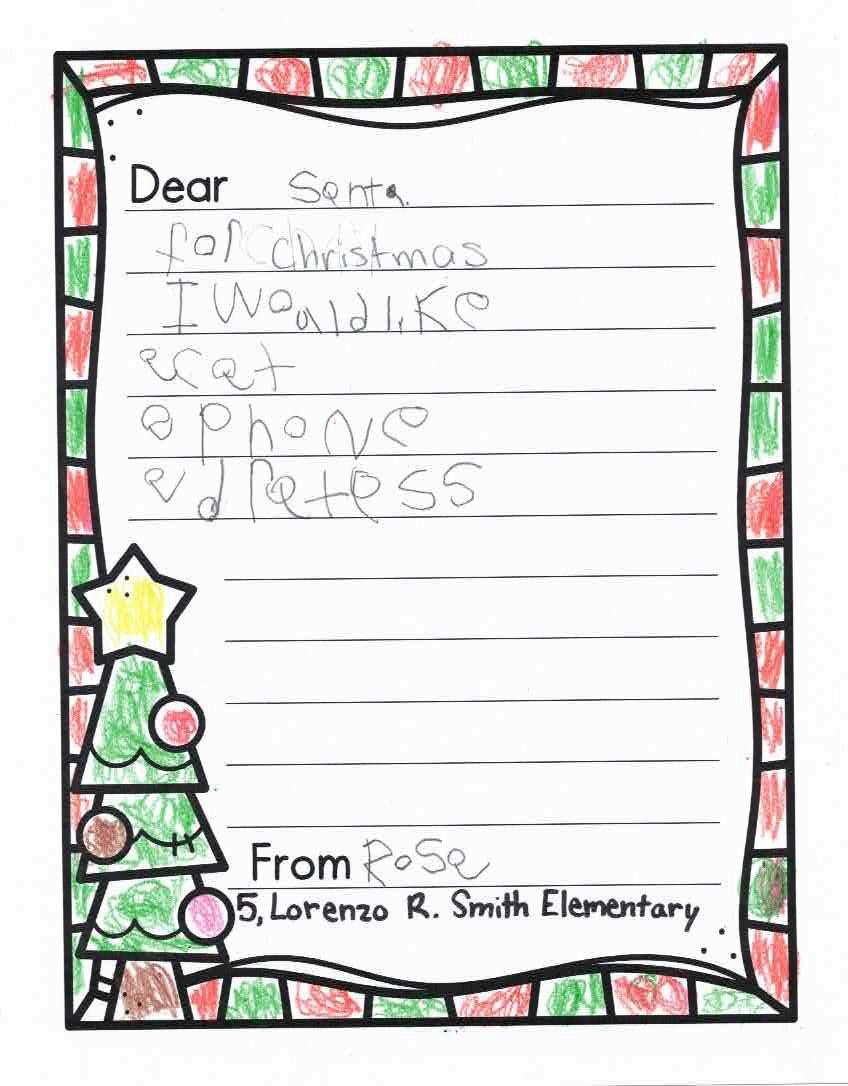 Dear Santa.
for christmas
I would like
a cat
a phone
a dratess
From Rose
5, Lorenzo R. Smith Elementary